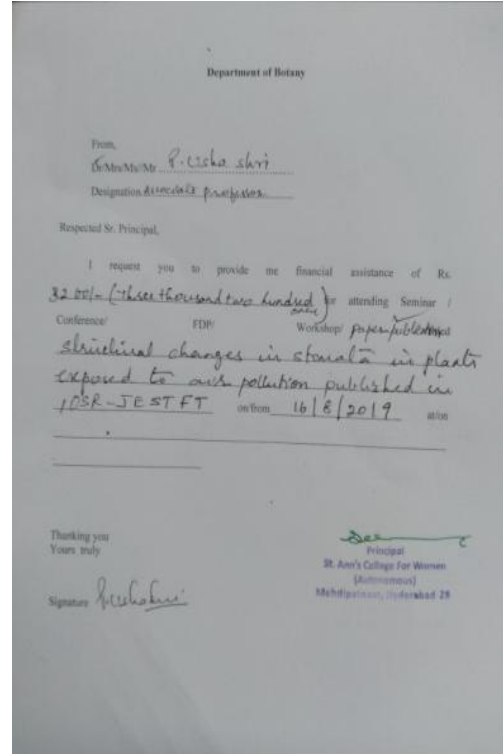 Department of Botany
From,
Dr/Mrs/Ms/Mr P. Usha Shri
Designation Associate professor
Respected Sr. Principal,
I request you to provide me financial assistance of Rs.
3200/- (three thousand two hundred only) for attending Seminar /
Conference/ FDP/ Workshop/ paper published
structural changes in stomata in plants
exposed to air pollution published in
IOSR-JESTFT on/from 16/8/2019 at/on
Thanking you
Yours truly
Principal
St. Ann's College For Women
(Autonomous)
Mehdipatnam, Hyderabad 28
Signature P. Usha Shri